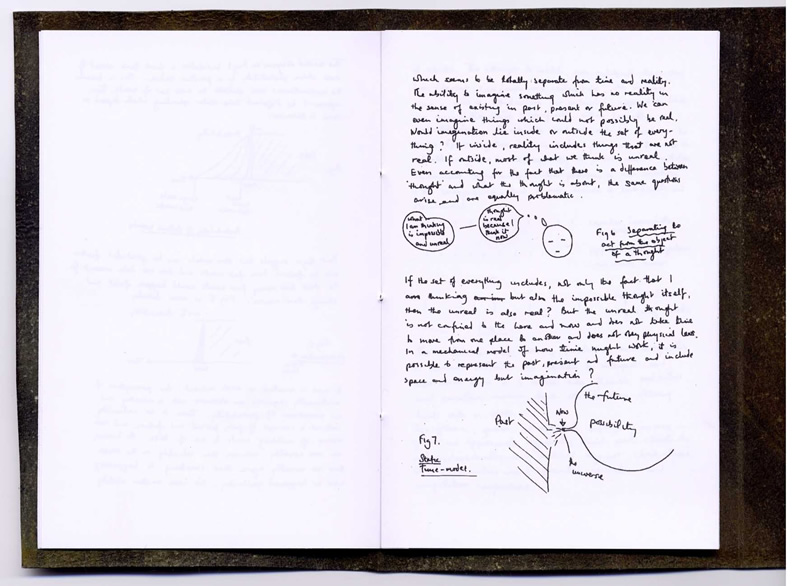 which seems to be totally separate from time and reality.
The ability to imagine something which has no reality in
the sense of existing in past, present or future. We can
even imagine things which could not possibly be real.
Would imagination lie inside or outside the set of every-
thing? If inside, reality includes things that are not
real. If outside, most of what we think is unreal.
Even accounting for the fact that there is a difference between
'thought' and what the thought is about, the same questions
arise and are equally problematic.
what
I am thinking
is impossible
and unreal
thought
is real
because I
think it
now
Fig 6 Separating the
act from the object
of a thought
If the set of everything includes, not only the fact that I
am thinking but also the impossible thought itself,
then the unreal is also real? But the unreal thought
is not confined to the here and now and does not take time
to move from one place to another and does not obey physical laws.
In a mechanical model of how time might work, it is
possible to represent the past, present and future and include
space and energy but imagination?
Past
Now
the future
possibility
the
universe
Fig 7.
Static
Time-model.